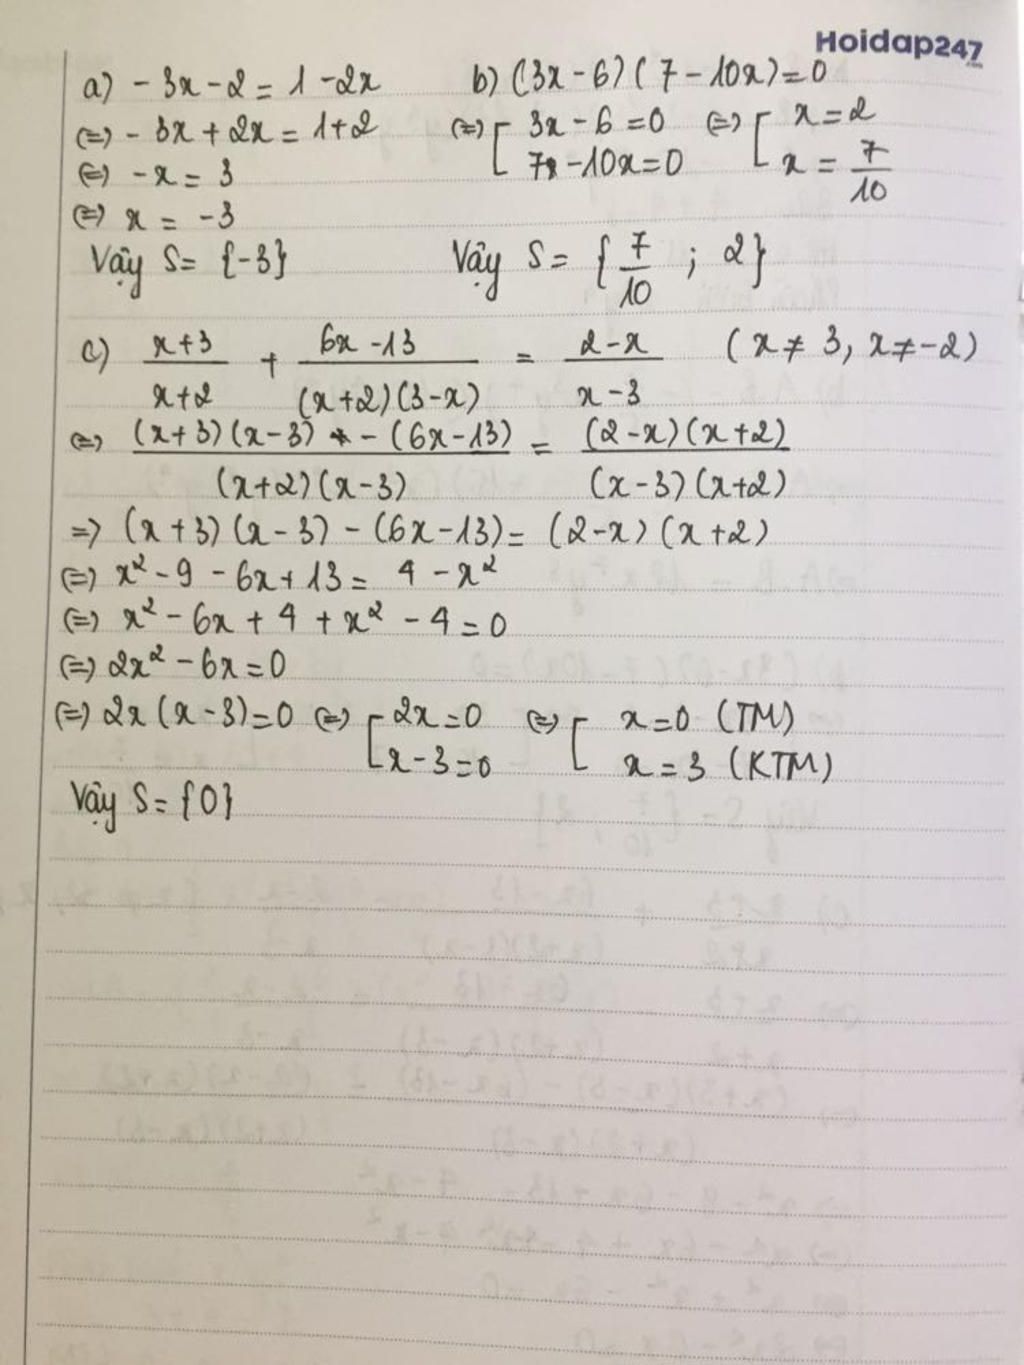 Hoidap247
.com
a) - 3x - 2 = 1 - 2x
(=) - 3x + 2x = 1 + 2
(=) - x = 3
(=) x = - 3
Vậy S = {-3}
b) (3x - 6) (7 - 10x) = 0
(=) [ 3x - 6 = 0 (=) [ x = 2
7x - 10x = 0 x = 7/10
Vậy S = { 7/10 ; 2 }
c) x+3/x+2 + 6x-13/(x+2)(3-x) = 2-x/x-3 (x ≠ 3, x ≠ -2)
(=) (x+3)(x-3) - (6x-13)/(x+2)(x-3) = (2-x)(x+2)/(x-3)(x+2)
=) (x+3)(x-3) - (6x-13) = (2-x)(x+2)
(=) x² - 9 - 6x + 13 = 4 - x²
(=) x² - 6x + 4 + x² - 4 = 0
(=) 2x² - 6x = 0
(=) 2x(x-3) = 0 (=) [ 2x = 0 (=) [ x = 0 (TM)
x - 3 = 0 x = 3 (KTM)
Vậy S = {0}